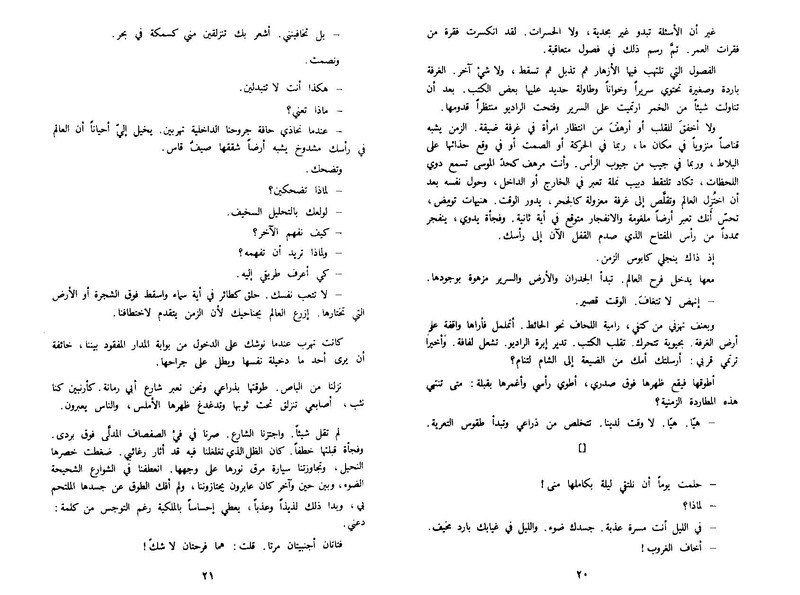 غير أن الأسئلة تبدو غير مجدية، ولا الحسرات. لقد انكسرت فقرة من
فقرات العمر. تمَّ رسم ذلك في فصول متعاقبة.
الفصول التي تلتهب فيها الأزهار ثم تذبل ثم تسقط، ولا شيء آخر. الغرفة
باردة وصغيرة تحتوي سريراً وخواناً وطاولة حديد عليها بعض الكتب. بعد أن
تناولت شيئاً من الخمر ارتميت على السرير وفتحت الراديو منتظراً قدومها.
ولا أخفقَ للقلب أو أرهفَ من انتظار امرأة في غرفة ضيقة. الزمن يشبه
قناصاً منزوياً في مكان ما، ربما في الحركة أو الصمت أو في وقع حذائها على
البلاط، وربما في جيب من جيوب الرأس. وأنت مرهف كحدّ الموسى تسمع دوي
اللحظات، تكاد تلتقط دبيب نملة تعبر في الخارج أو الداخل، وحول نفسه بعد
أن اختُزِل العالم وتقلَّص إلى غرفة معزولة كالجحر، يدور الوقت. هنيهات تومِض،
تحسّ أنك تعبر أرضاً ملغومة والانفجار متوقع في أية ثانية. وفجأة يدوي، ينفجر
ممدداً من رأس المفتاح الذي صدم القفل الآن إلى رأسك.
إذ ذاك ينجلي كابوس الزمن.
معها يدخل فرح العالم. تبدأ الجدران والأرض والسرير مزهوة بوجودها.
– إنهض لا تتغافَ. الوقت قصير.
وبعنف تهزني من كتفي، رامية اللحاف نحو الحائط. أتململ فأراها واقفة على
أرض الغرفة. بحيوية تتحرك. تقلب الكتب. تدير إبرة الراديو. تشعل لفافة. وأخيراً
ترتمي قربي: أرسلتك أمك من الضيعة إلى الشام لتنام؟
أطوقها فيقع ظهرها فوق صدري، أطوي رأسي وأغمرها بقبلة: متى تنتهي
هذه المطاردة الزمنية؟
– هيّا. هيّا. لا وقت لدينا. تتخلص من ذراعي وتبدأ طقوس التعرية.
[]
– حلمت يوماً أن نلتقي ليلة بكاملها منى!
– لماذا؟
– في الليل أنت مسرة عذبة. جسدك ضوء. والليل في غيابك بارد مخيف.
– أخاف الغروب!
٢٠
– بل تخافينني. أشعر بك تنزلقين مني كسمكة في بحر.
ونصمت.
– هكذا أنت لا تتبدلين.
– ماذا تعني؟
– عندما نحاذي حافة جروحنا الداخلية تهربين. يخيل إليّ أحياناً أن العالم
في رأسك مشدوخ يشبه أرضاً شققها صيفٌ قاس.
وتضحك.
– لماذا تضحكين؟
– لولعك بالتحليل السخيف.
– كيف نفهم الآخر؟
– ولماذا تريد أن تفهمه؟
– كي أعرف طريقي إليه.
– لا تتعب نفسك. حلق كطائر في أية سماء واسقط فوق الشجرة أو الأرض
التي تختارها. إزرع العالم بجناحيك لأن الزمن يتقدم لاختطافنا.
كانت تهرب عندما نوشك على الدخول من بوابة المدار المفقود بيننا، خائفة
أن يرى أحد ما دخيلة نفسها ويطل على جراحها.
نزلنا من الباص. طوقتها بذراعي ونحن نعبر شارع أبي رمانة. كأرنبين كنا
نثب، أصابعي تنزلق تحت ثوبها وتدغدغ ظهرها الأملس، والناس يعبرون.
لم تقل شيئاً. واجتزنا الشارع. صرنا في فيْ الصفصاف المدلَّى فوق بردى.
وفجأة قبلتها خطفاً. كان الظل الذي تغلغلنا فيه قد أثار رغائبي. ضغطت خصرها
النحيل، وتجاوزتنا سيارة مرق نورها على وجهها. انعطفنا في الشوارع الشحيحة
الضوء، وبين حين وآخر كان عابرون يجتازوننا، ولم أفك الطوق عن جسدها الملتحم
في، وبدا ذلك لذيذاً وعذباً، يعطي إحساساً بالملكية رغم التوجس من كلمة:
دعني.
فتاتان أجنبيتان مرتا. قلت: هما فرحتان لا شكّ!
٢١